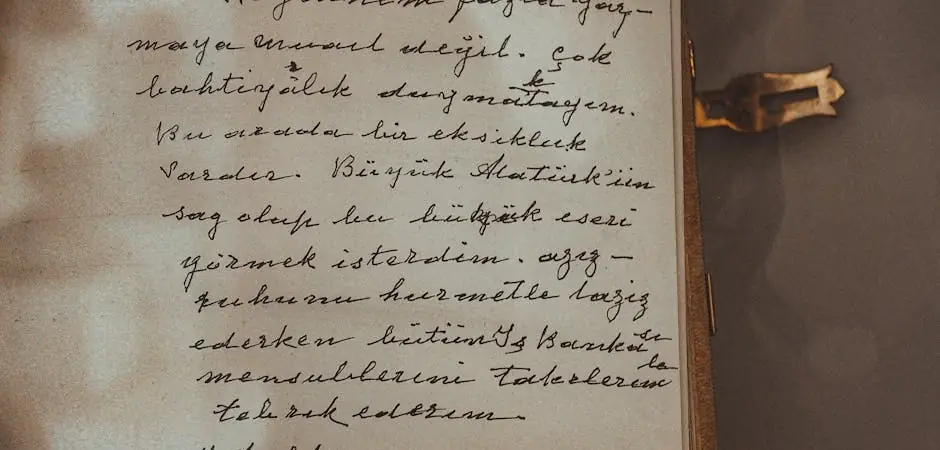 fazla yaz-
maya muail değil. Çok
bahtiyârlık duymaktayım.
Bu arada bir eksiklik
vardır. Büyük Atatürk'ün
sag olup bu büyük eseri
görmek isterdim. aziz-
ruhunu hurmetle taziz
ederken bütün İş Bankası
mensublerini takdirlerimle
tebrik ederim.